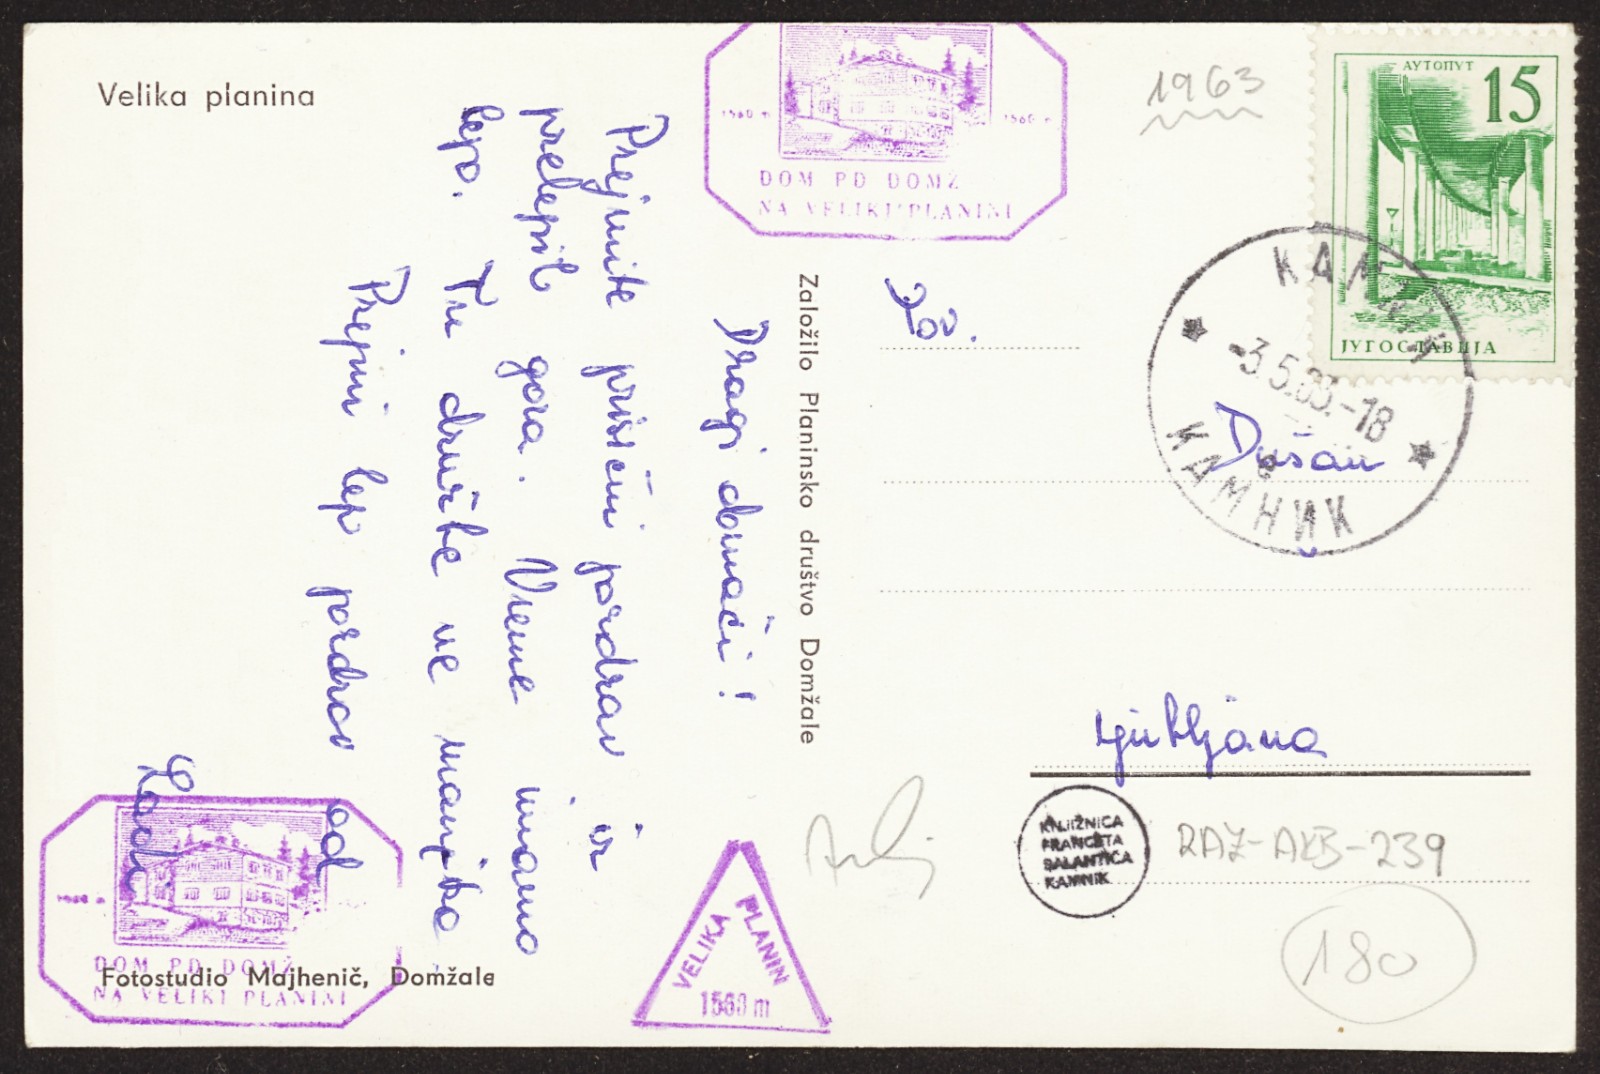 Velika planina
1560 m 1560 m
DOM PD DOMŽ
NA VELIKI PLANINI
1963
АУТОПУТ 15
ЈУГОСЛАВИЈА
KAMNIK
-3.5.63.-18
КАМНИК
Dragi domači!
Prejmite prisrčni pozdrav iz
prelepih gora. Vreme imamo
lepo. Tu družbe ne manjka
Prejmi lep pozdrav od
Ladi
Založilo Planinsko društvo Domžale
Tov.
Dušan
Ljubljana
KNJIŽNICA
FRANCETA
BALANTIČA
KAMNIK
RAZ-AKB-239
180
VELIKA PLANINA
1560 m
DOM PD DOMŽ
NA VELIKI PLANINI
Fotostudio Majhenič, Domžale